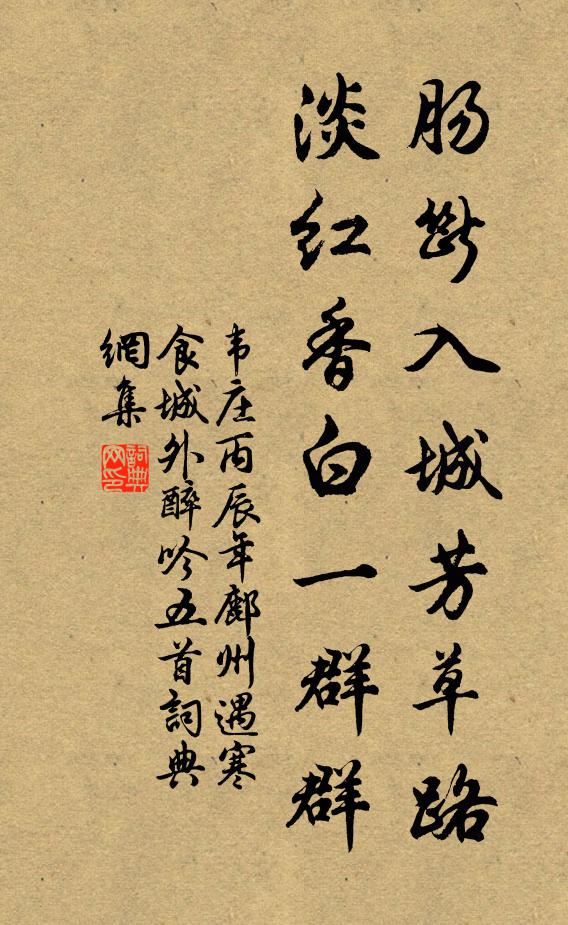 肠斷入城芳草路
淡红香白一群群
韦庄丙辰年鄜州遇寒
食城外醉吟五首詞典
網集
詞典
网印